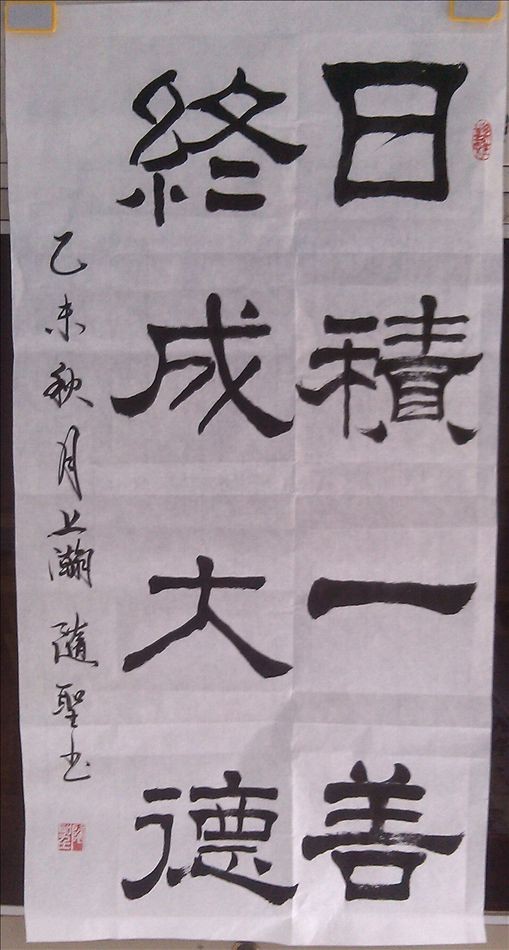 日積一善
終成大德
乙未秋月上瀚 隨聖书